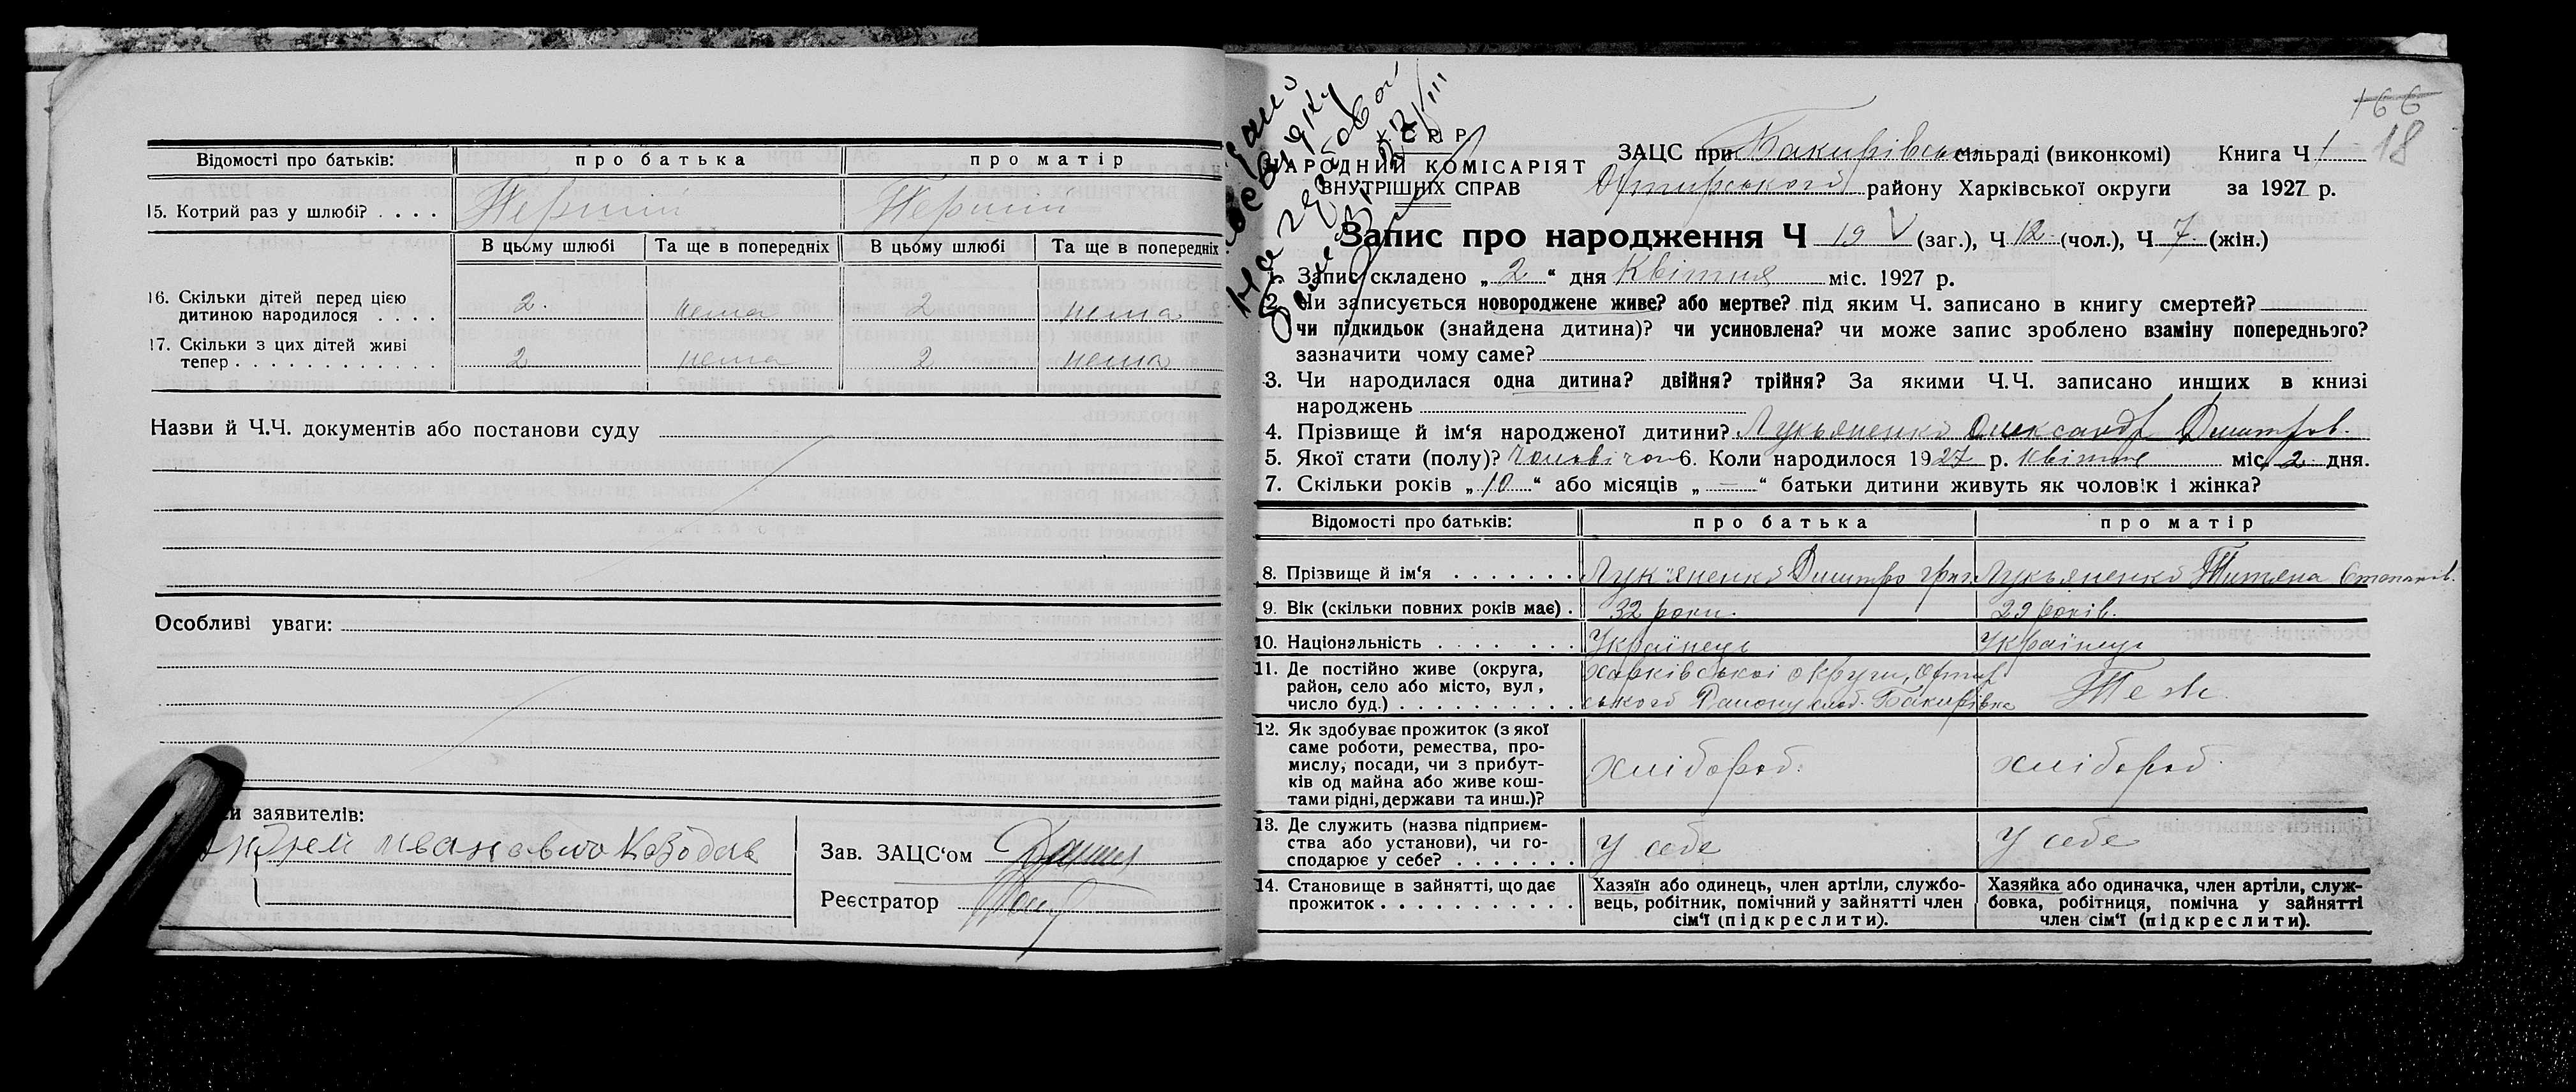 Відомості про батьків: про батька про матір
15. Котрий раз у шлюбі? . . . . Перший Перший
В цьому шлюбі Та ще в попередніх В цьому шлюбі Та ще в попередніх
16. Скільки дітей перед цією
дитиною народилося . . . . 2. нема 2 нема
17. Скільки з цих дітей живі
тепер . . . . . . . . . . . . 2 нема 2 нема
Назви й Ч.Ч. документів або постанови суду
Особливі уваги:
и заявителів:
Зав. ЗАЦС‘ом
Реєстратор
166
18
С Р Р
НАРОДНИЙ КОМІСАРІЯТ
ВНУТРІШНІХ СПРАВ
ЗАЦС при Бакирівськ сільраді (виконкомі) Книга Ч 1
Охтирського району Харківської округи за 1927 р.
Запис про народження Ч 19 V (заг.), Ч 12 (чол.), Ч 7. (жін.)
1. Запис складено „ 2 “ дня Квітня міс. 1927 р.
2. Чи записується новороджене живе? або мертве? під яким Ч. записано в книгу смертей?
чи підкидьок (знайдена дитина)? чи усиновлена? чи може запис зроблено взаміну попереднього?
зазначити чому саме?
3. Чи народилася одна дитина? двійня? трійня? За якими Ч.Ч. записано инших в книзі
народжень
4. Прізвище й ім‘я народженої дитини? Лукьяненко Олександр Дмитров.
5. Якої стати (полу)? Чоловічої 6. Коли народилося 1927 р. квітня міс. 2 дня.
7. Скільки років „ 10 “ або місяців „ — “ батьки дитини живуть як чоловік і жінка?
Відомості про батьків: про батька про матір
8. Прізвище й ім‘я . . . . . . . Лук'яненко Дмитро Григ. Лукьяненко Титяна Степанів.
9. Вік (скільки повних років має) . 32 роки. 29 років.
10. Національність . . . . . . . Українець Українець
11. Де постійно живе (округа,
район, село або місто, вул.,
число буд.) . . . . . . . . . .
Харківської округи, Охтир
ського Району слоб. Бакирівка
Теж
12. Як здобуває прожиток (з якої
саме роботи, ремества, про-
мислу, посади, чи з прибут-
ків од майна або живе кош-
тами рідні, держави та инш.)?
хлібороб. хлібороб.
13. Де служить (назва підприєм-
ства або установи), чи го-
сподарює у себе? . . . . . . .
У себе У себе
14. Становище в зайнятті, що дає
прожиток . . . . . . . . . . .
Хазяїн або одинець, член артіли, службо-
вець, робітник, помічний у зайнятті член
сім‘ї (підкреслити).
Хазяйка або одиначка, член артіли, служ-
бовка, робітниця, помічна у зайнятті
член сім‘ї (підкреслити).